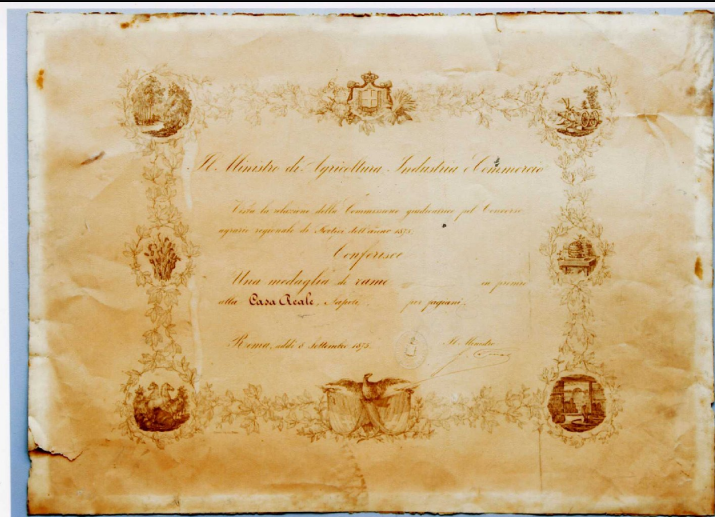 Il Ministro di Agricoltura Industria e Commercio
Vista la relazione della Commissione giudicatrice pel Concorso
agrario regionale di Portici dell'anno 1875.
Conferisce
Una medaglia di rame in premio
alla Casa Reale. Napoli. per
Roma, addì 5 Settembre 1875. Il Ministro